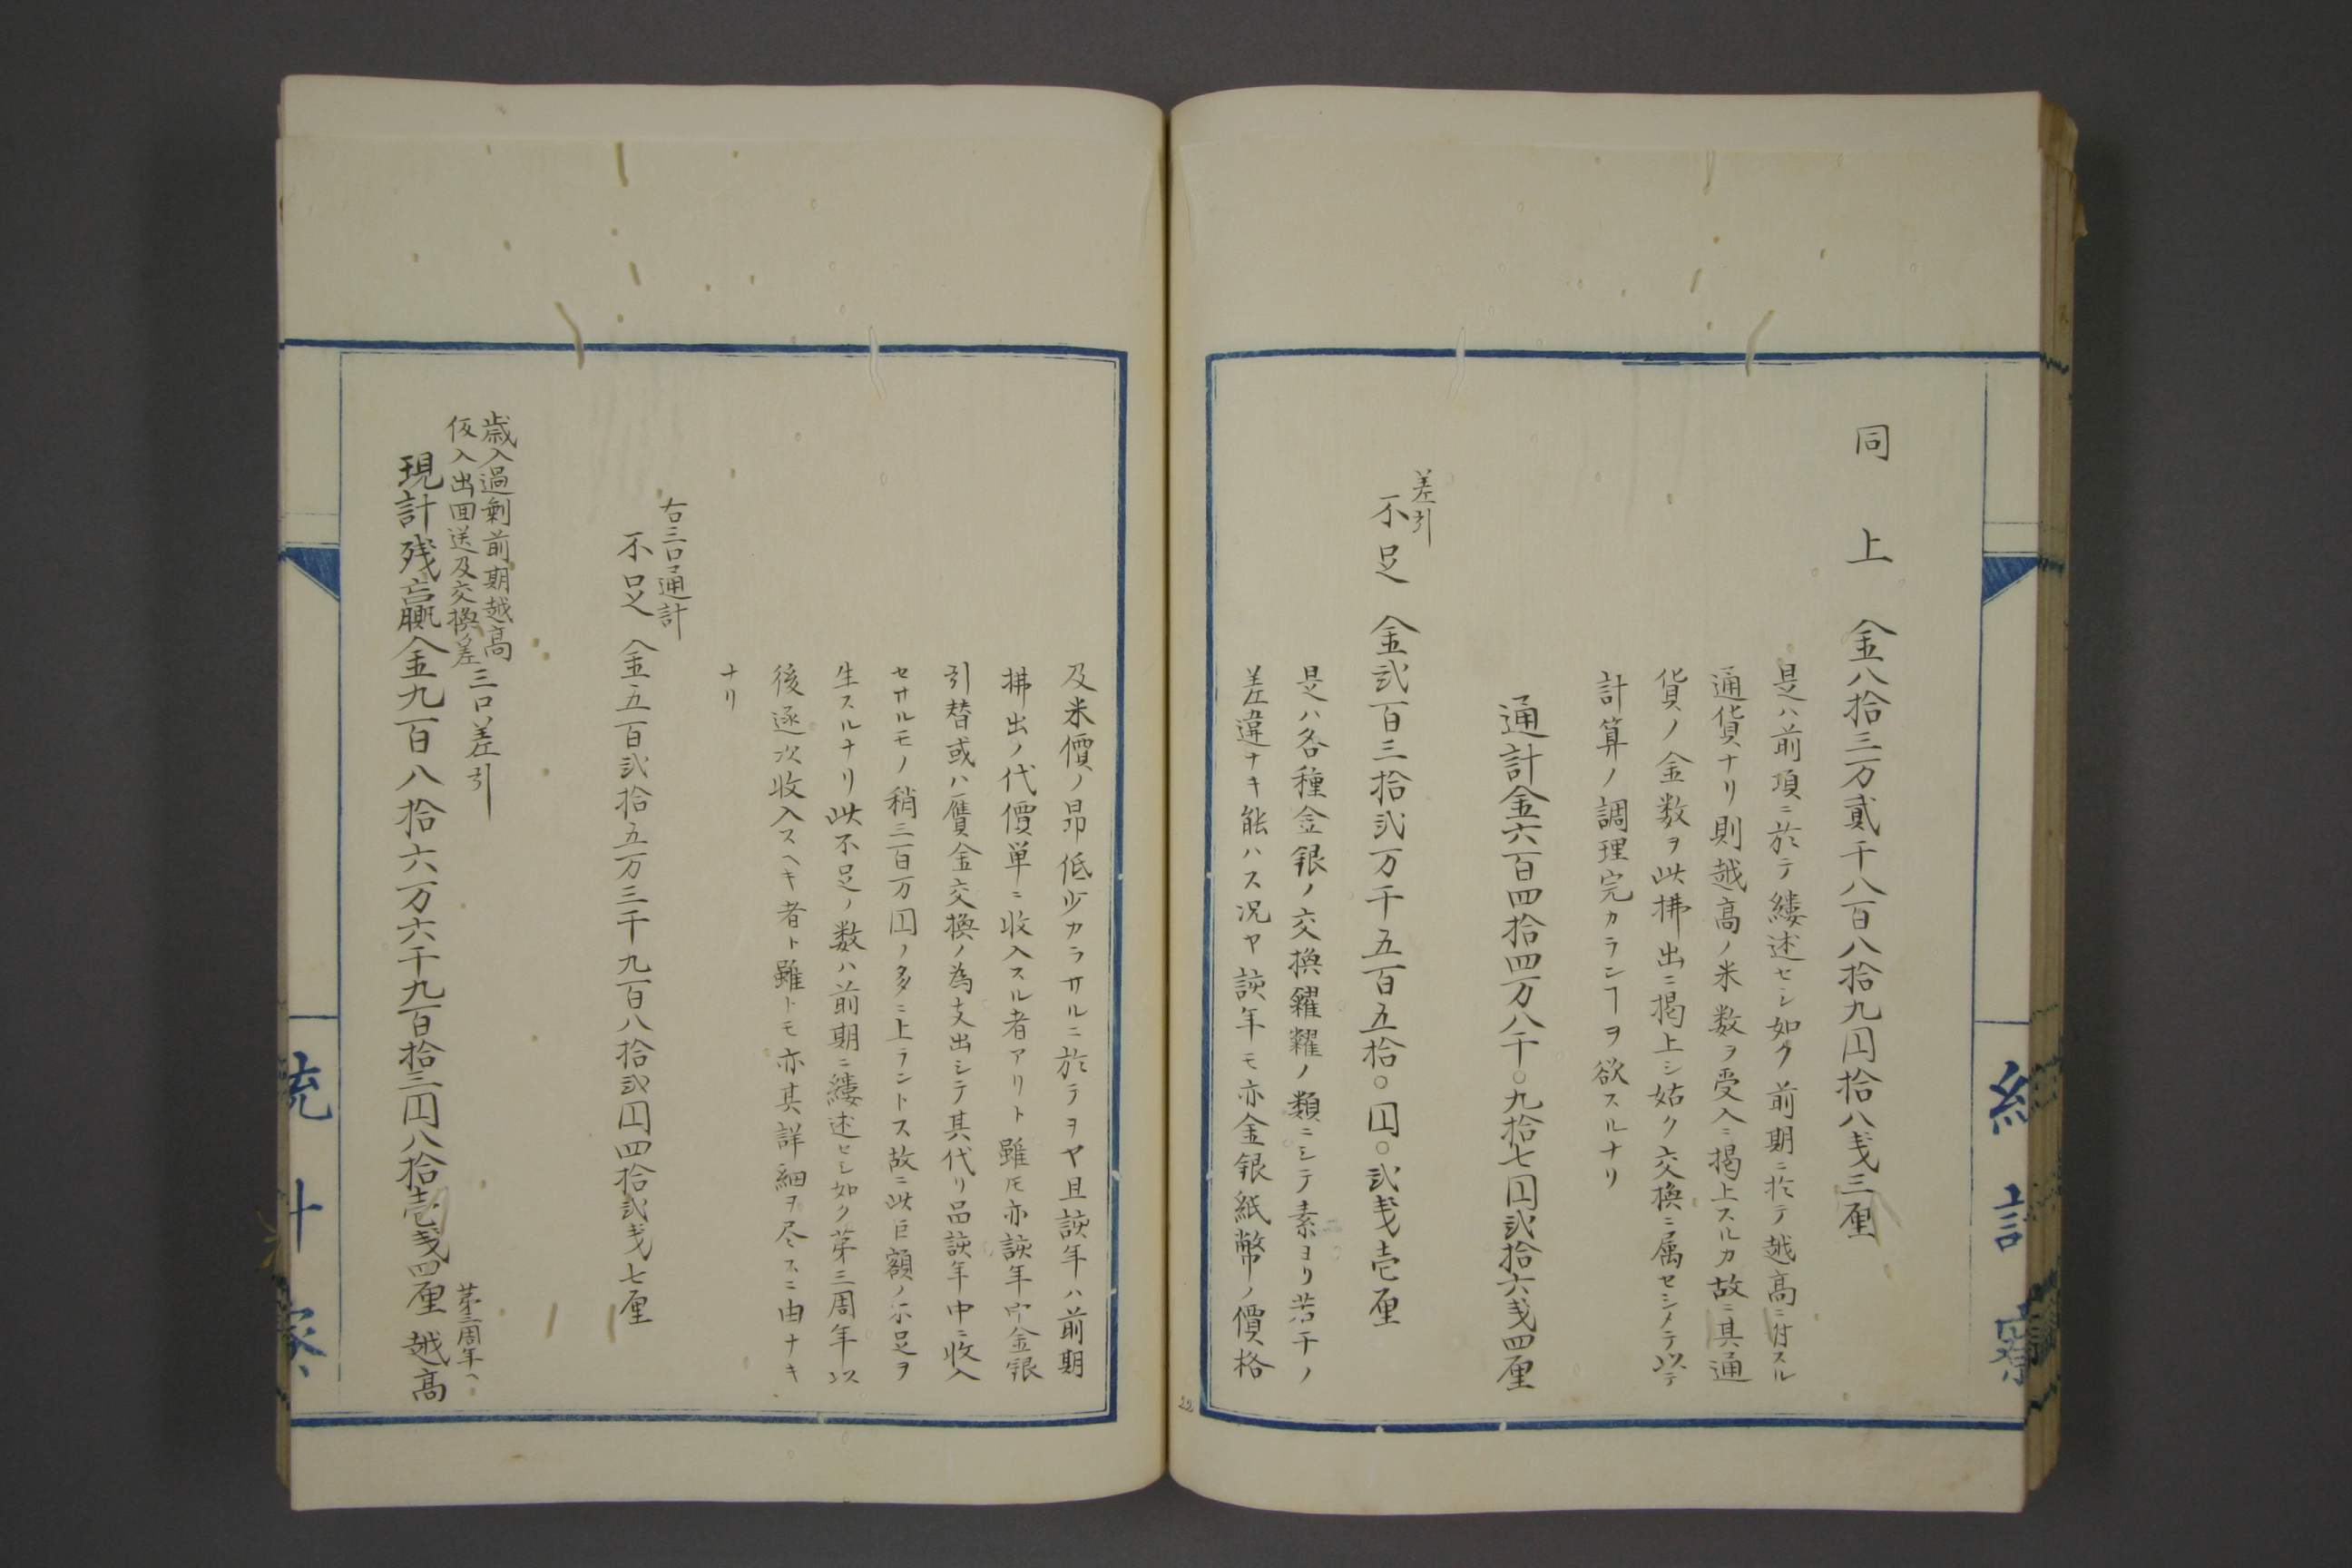 同上 金八拾三万貳千八百八拾九円拾八戔三厘
是ハ前項ニ於テ縷述セシ如ク前期ニ於テ越高ニ付スル
通貨ナリ則越高ノ米数ヲ受入ニ掲上スルカ故ニ其通
貨ノ金数ヲ此拂出ニ掲上シ姑ク交換ニ属セシメテ以テ
計算ノ調理完カランヿヲ欲スルナリ
通計金六百四拾四万八千〇九拾七円弐拾六戔四厘
差引
不足 金弐百三拾弐万千五百五拾〇円〇弐戔壱厘
是ハ各種金銀ノ交換糴糶ノ類ニシテ素ヨリ若干ノ
差違ナキ能ハス况ヤ該年モ亦金銀紙幣ノ價格
22
及米價ノ昂低少カラサルニ於テヲヤ且該年ハ前期
拂出ノ代價単ニ收入スル者アリト雖モ亦該年中金銀
引替或ハ贋金交換ノ為支出シテ其代リ品該年中ニ收入
セサルモノ稍三百万円ノ多ニ上ラントス故ニ此巨額ノ不足ヲ
生スルナリ此不足ノ数ハ前期ニ縷述セシ如ク第三周年以
後逐次收入スヘキ者ト雖トモ亦其詳細ヲ尽スニ由ナキ
ナリ
右三口通計
不足 金五百弐拾五万三千九百八拾弐円四拾弐戔七厘
歳入過剰前期越高
仮入出回送及交換差 三口差引
現計残贏金九百八拾六万六千九百拾三円八拾壱戔四厘 第三周年ヘ 越高
統計寮